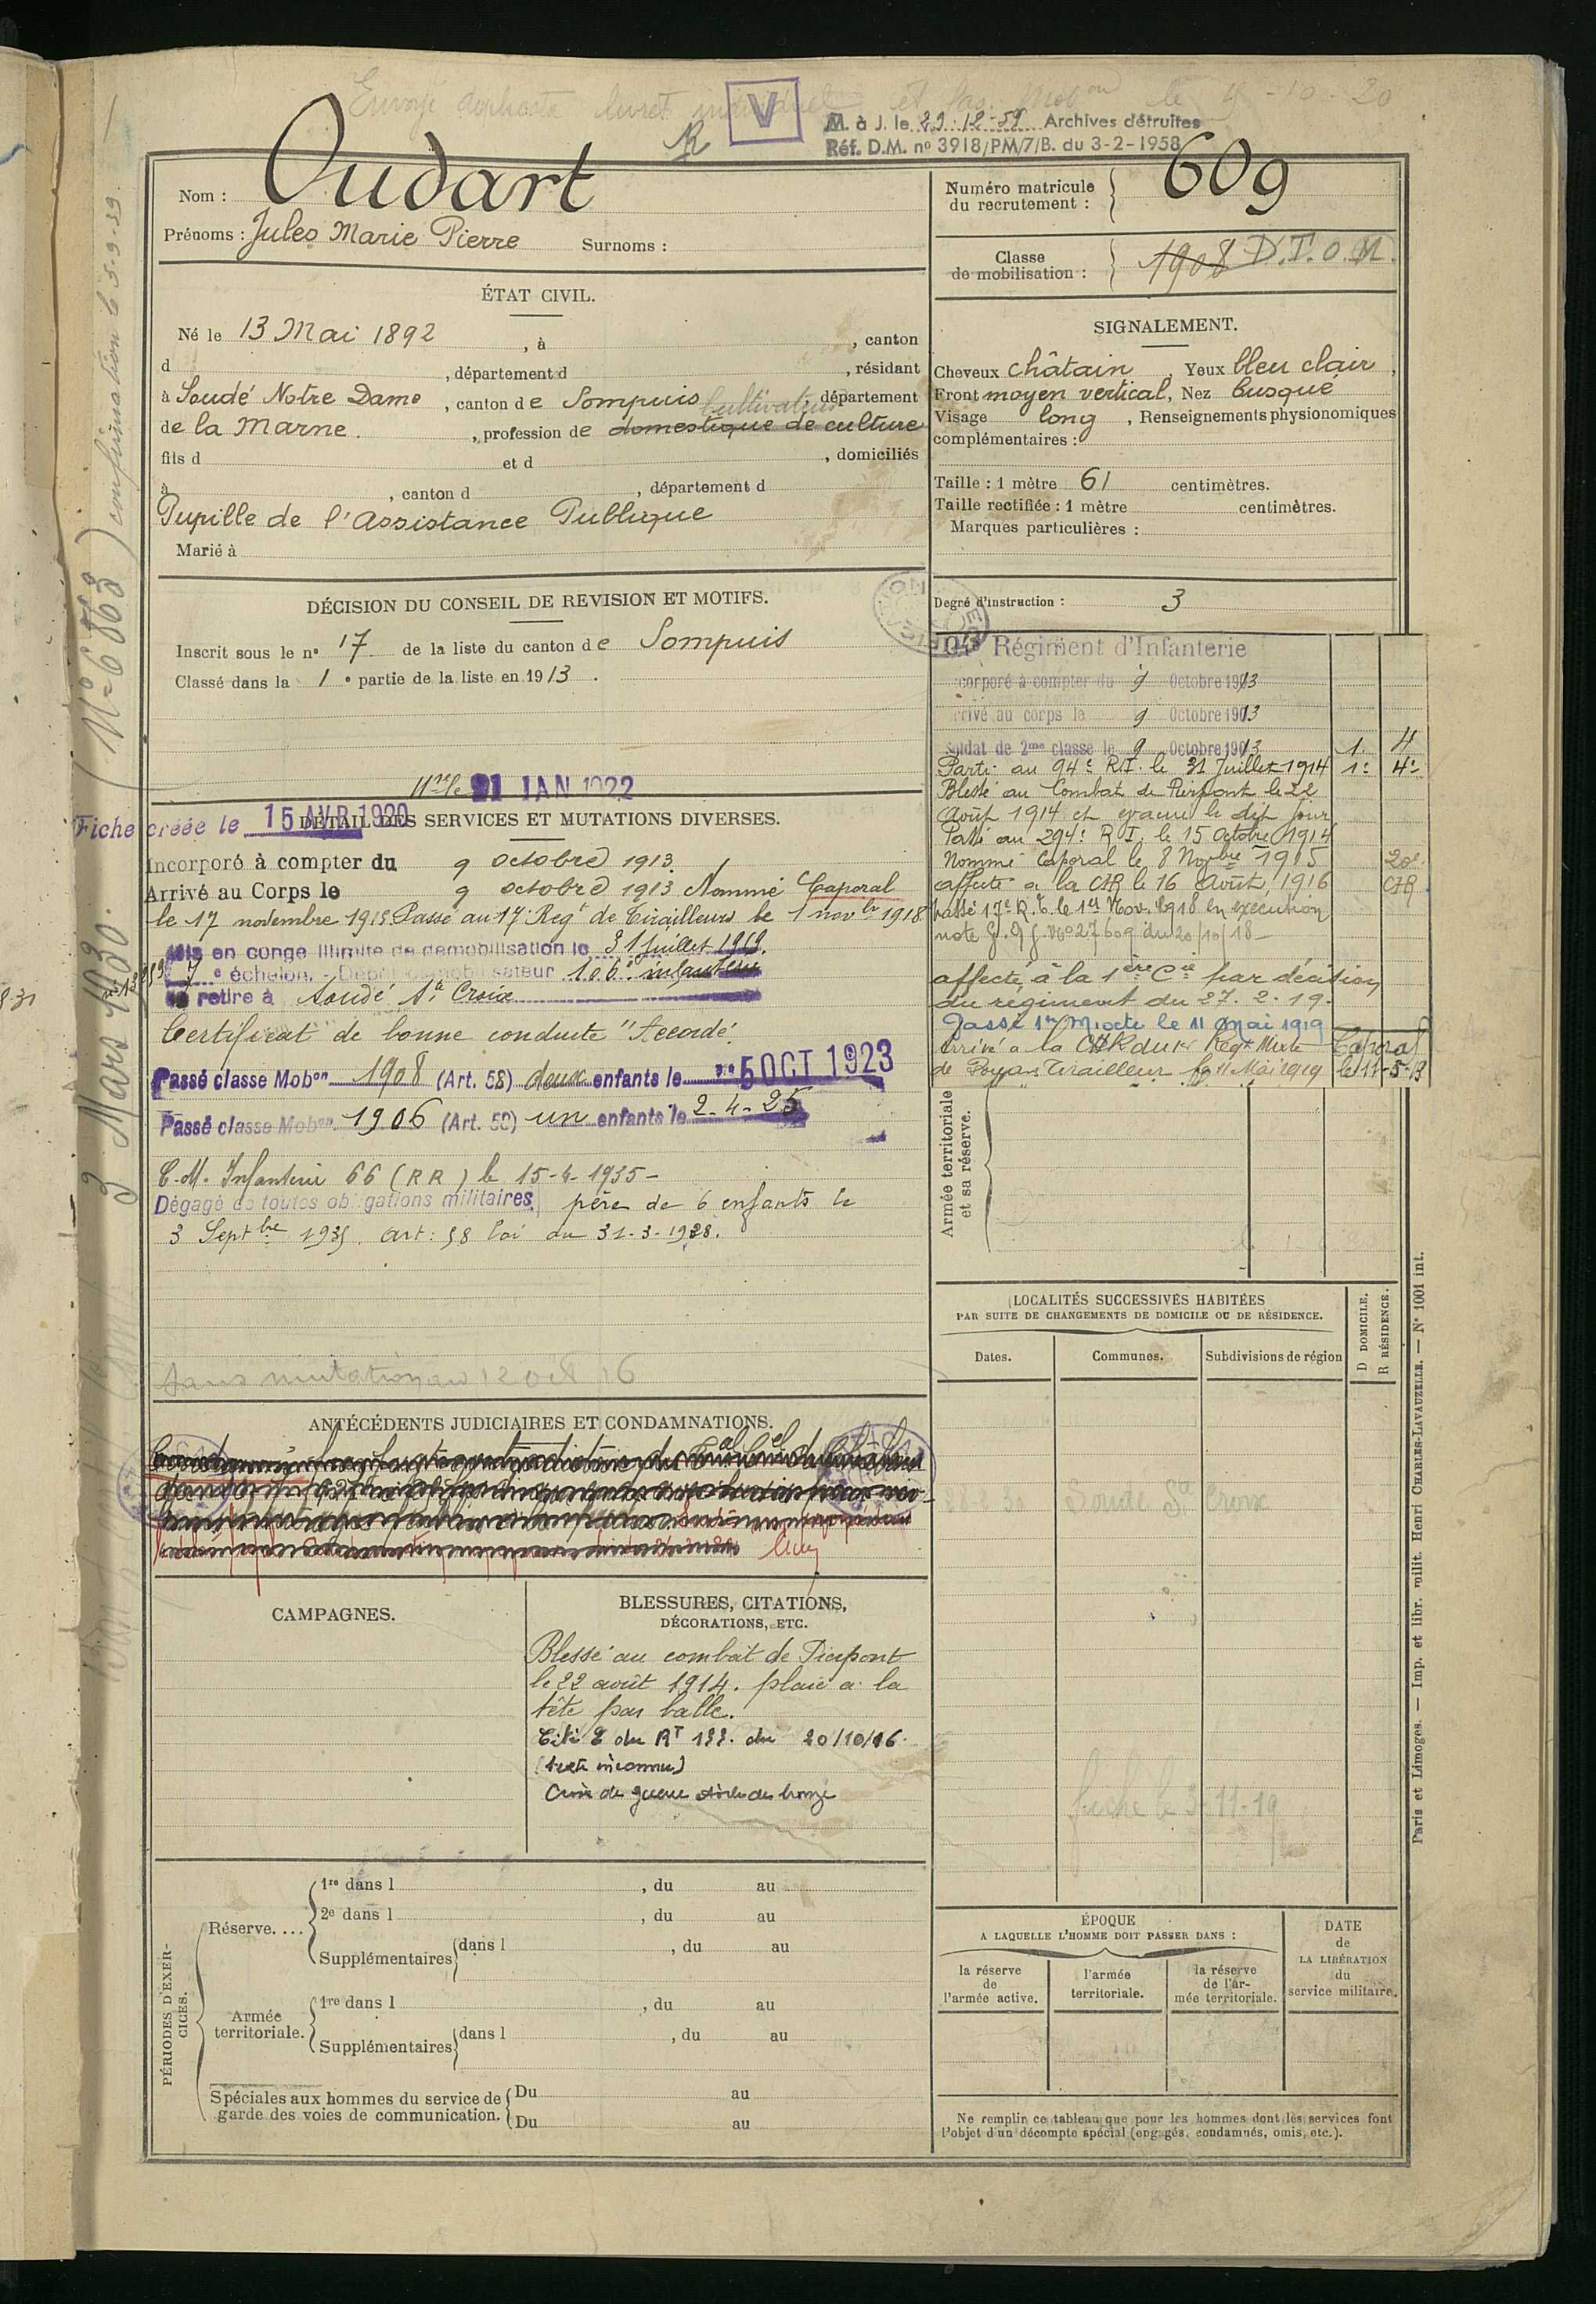 Envoyé duplicata livret individuel et fas. Mob on le 4-10-20
V
R
M. à J. le 29-12-59 Archives détruites
Réf. D.M. nº 3918/PM/7/B. du 3-2-1958
Nom : Oudart
Prénoms : Jules Marie Pierre Surnoms :
Numéro matricule du recrutement : 609
Classe de mobilisation : 1908 D.T.O.M.
ÉTAT CIVIL.
Né le 13 Mai 1892, à , canton
d , département d , résidant
à Soudé Notre Dame, canton de Sompuis, département
Cultivateur
de la Marne, profession de domestique de culture
fils d et d , domiciliés
à , canton d , département d
Pupille de l'Assistance Publique
Marié à
SIGNALEMENT.
Cheveux châtain, Yeux bleu clair,
Front moyen vertical, Nez busqué
Visage long, Renseignements physionomiques
complémentaires :
Taille : 1 mètre 61 centimètres.
Taille rectifiée : 1 mètre centimètres.
Marques particulières :
Degré d'instruction : 3
DÉCISION DU CONSEIL DE REVISION ET MOTIFS.
Inscrit sous le nº 17 de la liste du canton de Sompuis
Classé dans la 1e partie de la liste en 1913.
21 JAN 1922
Fiche créée le 15 AVR 1920
DÉTAIL DES SERVICES ET MUTATIONS DIVERSES.
Incorporé à compter du 9 octobre 1913.
Arrivé au Corps le 9 octobre 1913 Nommé Caporal
le 17 novembre 1915. Passé au 17 Regt de Tirailleurs le 1 novbr 1918
Mis en congé illimité de démobilisation le 31 juillet 1919.
7e échelon. Dépôt démobilisateur 106e infanterie
se retire à Soudé Ste Croix
Certificat de bonne conduite "Accordé"
Passé classe Mobon 1908 (Art. 58) deux enfants le 5 OCT 1923
Passé classe Mobon 1906 (Art. 58) un enfants le 2-4-25
C.M. Infanterie 66 (RR) le 15-4-1935-
Dégagé de toutes obligations militaires, père de 6 enfants le
3 Septbre 1935. art: 58 loi du 31-3-1928.
Sans mutation au 12 oct 16
Régiment d'Infanterie
corporé à compter du 9 Octobre 1913
rrivé au corps le 9 Octobre 1913
Soldat de 2me classe le 9 Octobre 1913 1. 4
Parti au 94e R.I. le 31 Juillet 1914 1e 4e
Blessé au Combat de Pierpont le 22
Août 1914 et évacué le dit jour
Passé au 294e R.I. le 15 Octobre 1914
Nommé Caporal le 8 Novbre 1915 20e
affecté à la CHR le 16 Août 1916 CHR
passé 17e R.T. le 1er Nov. 1918 en exécution
note G.Q.G. Nº 27609 du 20/10/18-
affecté à la 1ère Cie par décision
du régiment du 27.2.19.
Passé 1er Mixte le 11 Mai 1919
Arrivé à la CHR du 1er Regt Mixte Caporal
de Zouaves Tirailleur le 11 Mai 1919 le 11-5-19
Armée territoriale et sa réserve.
LOCALITÉS SUCCESSIVES HABITÉES
PAR SUITE DE CHANGEMENTS DE DOMICILE OU DE RÉSIDENCE.
Dates. Communes. Subdivisions de région
D DOMICILE.
R RÉSIDENCE.
Soudé Ste Croix
fiche le 3-11-19
ANTÉCÉDENTS JUDICIAIRES ET CONDAMNATIONS.
CAMPAGNES.
BLESSURES, CITATIONS,
DÉCORATIONS, ETC.
Blessé au combat de Pierpont
le 22 août 1914. plaie à la
tête par balle.
Cité O du RT 133. du 20/10/16.
(texte inconnu)
Croix de guerre étoile de bronze
PÉRIODES D'EXERCICES.
Réserve....
1re dans l , du au
2e dans l , du au
Supplémentaires dans l , du au
Armée territoriale.
1re dans l , du au
Supplémentaires dans l , du au
Spéciales aux hommes du service de
garde des voies de communication.
Du au
Du au
ÉPOQUE
A LAQUELLE L'HOMME DOIT PASSER DANS :
la réserve de l'armée active.
l'armée territoriale.
la réserve de l'armée territoriale.
DATE de LA LIBÉRATION du service militaire.
Ne remplir ce tableau que pour les hommes dont les services font
l'objet d'un décompte spécial (engagés, condamnés, omis, etc.).
Paris et Limoges. — Imp. et libr. milit. Henri CHARLES-LAVAUZELLE. — Nº 1001 int.
3 Mars 1930. (Nº 6863) confirmation le 5-9-39.